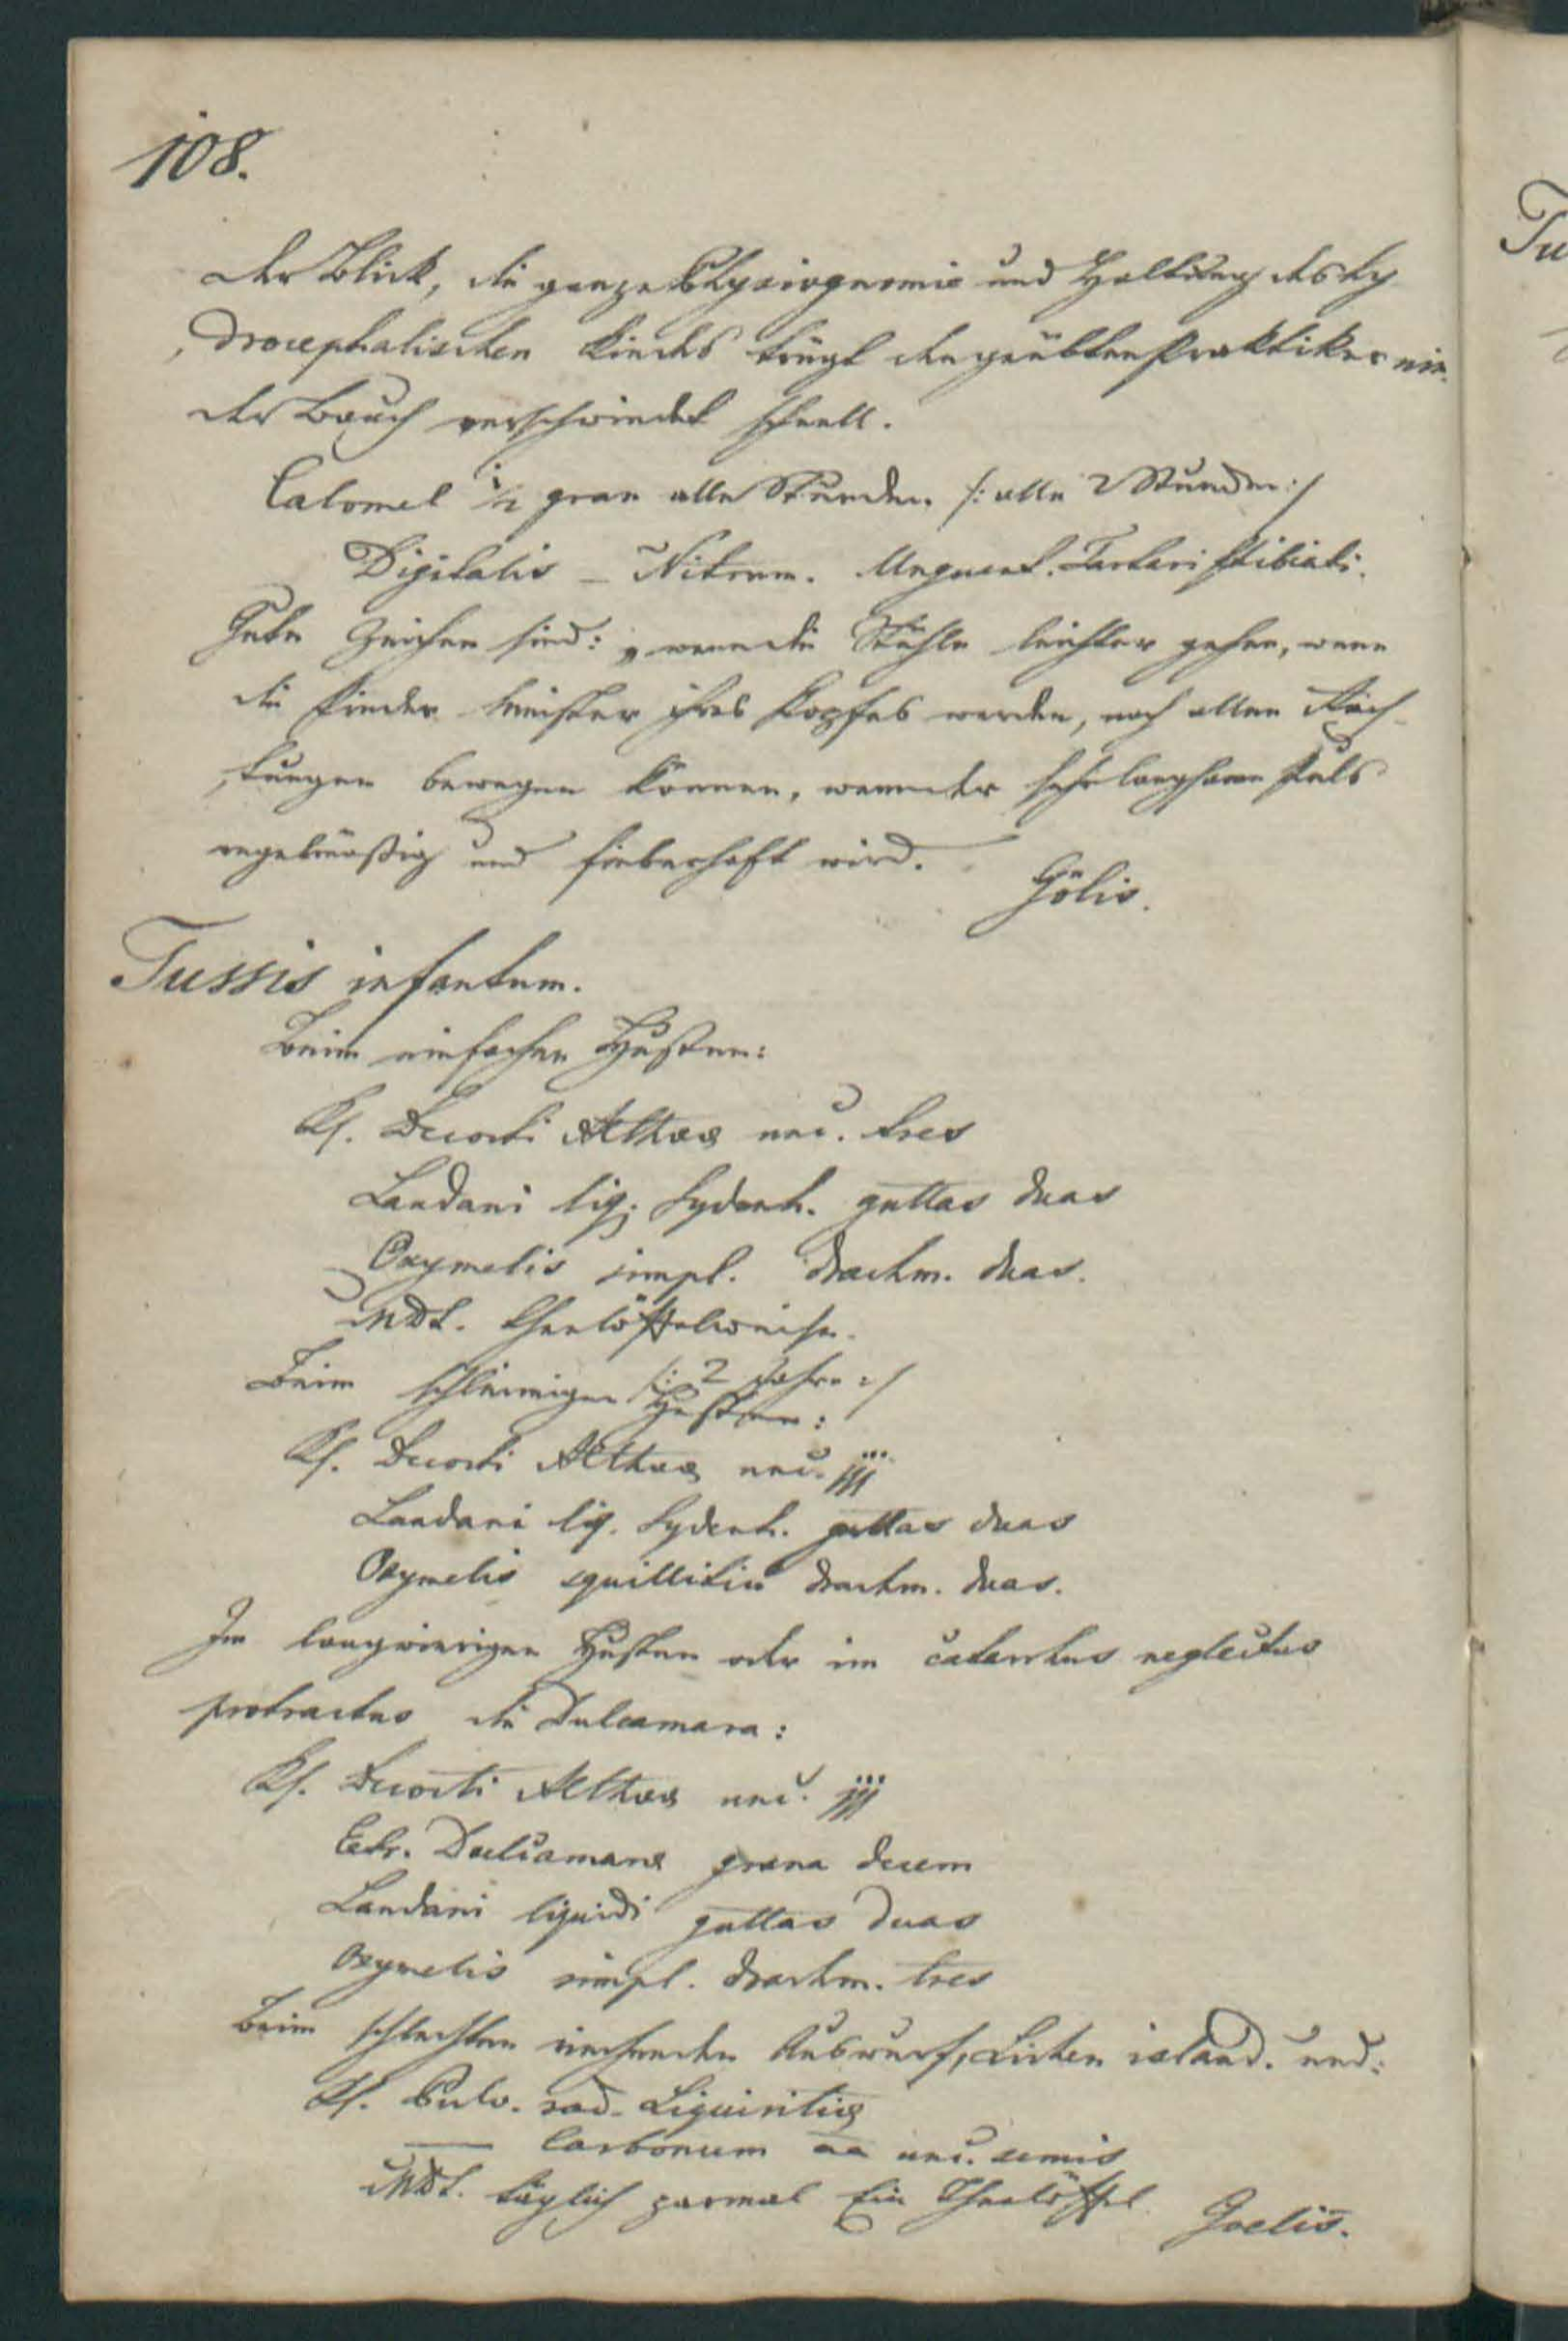 108.
der Blick, die ganze Physiognomie und Haltung des hy
drocephalischen Kindes trügt den geübten Praktiker nie.
der Bauch verschwindet schnell.
Calomel ½ gran alle Stunden /: alle 2 Stunden :/
Digitalis – Nitrum. Unguent. Tartari stibiati.
Gute Zeichen sind: wenn die Stühle leichter gehen, wenn
die Kinder Meister ihres Kopfes werden, nach allen Rich-
tungen bewegen können, wenn der sehr langsame Puls
regelmäßig und fieberhaft wird.
Gölis.
Tussis infantum.
Beim einfachen Husten:
Rf. Decocti Altheae unc. tres
Laudani liq. Sydenh. guttas duas
Oxymelis simpl. drachm. duas.
MDS. Theelöffelweise.
/: 2 Jahre :/
Beim schleimigen Husten:
Rf. Decocti Altheae unc. jjj
Laudani liq. Sydenh. guttas duas
Oxymelis squillitici drachm. duas.
Im langwierigen Husten oder im catarrhus neglectus
protractus die Dulcamara:
Rf. Decocti Altheae unc. jjj
Extr. Dulcamarae grana decem
Laudani liquidi guttas duas
Oxymelis simpl. drachm. tres
Beim schlechten riechenden Auswurf, Lichen island. und:
Rf. Pulv. rad. Liquiritiae
— Carbonum aa unc. semis
MDS. täglich zweimal Ein Theelöffel.
Goelis.
Tu